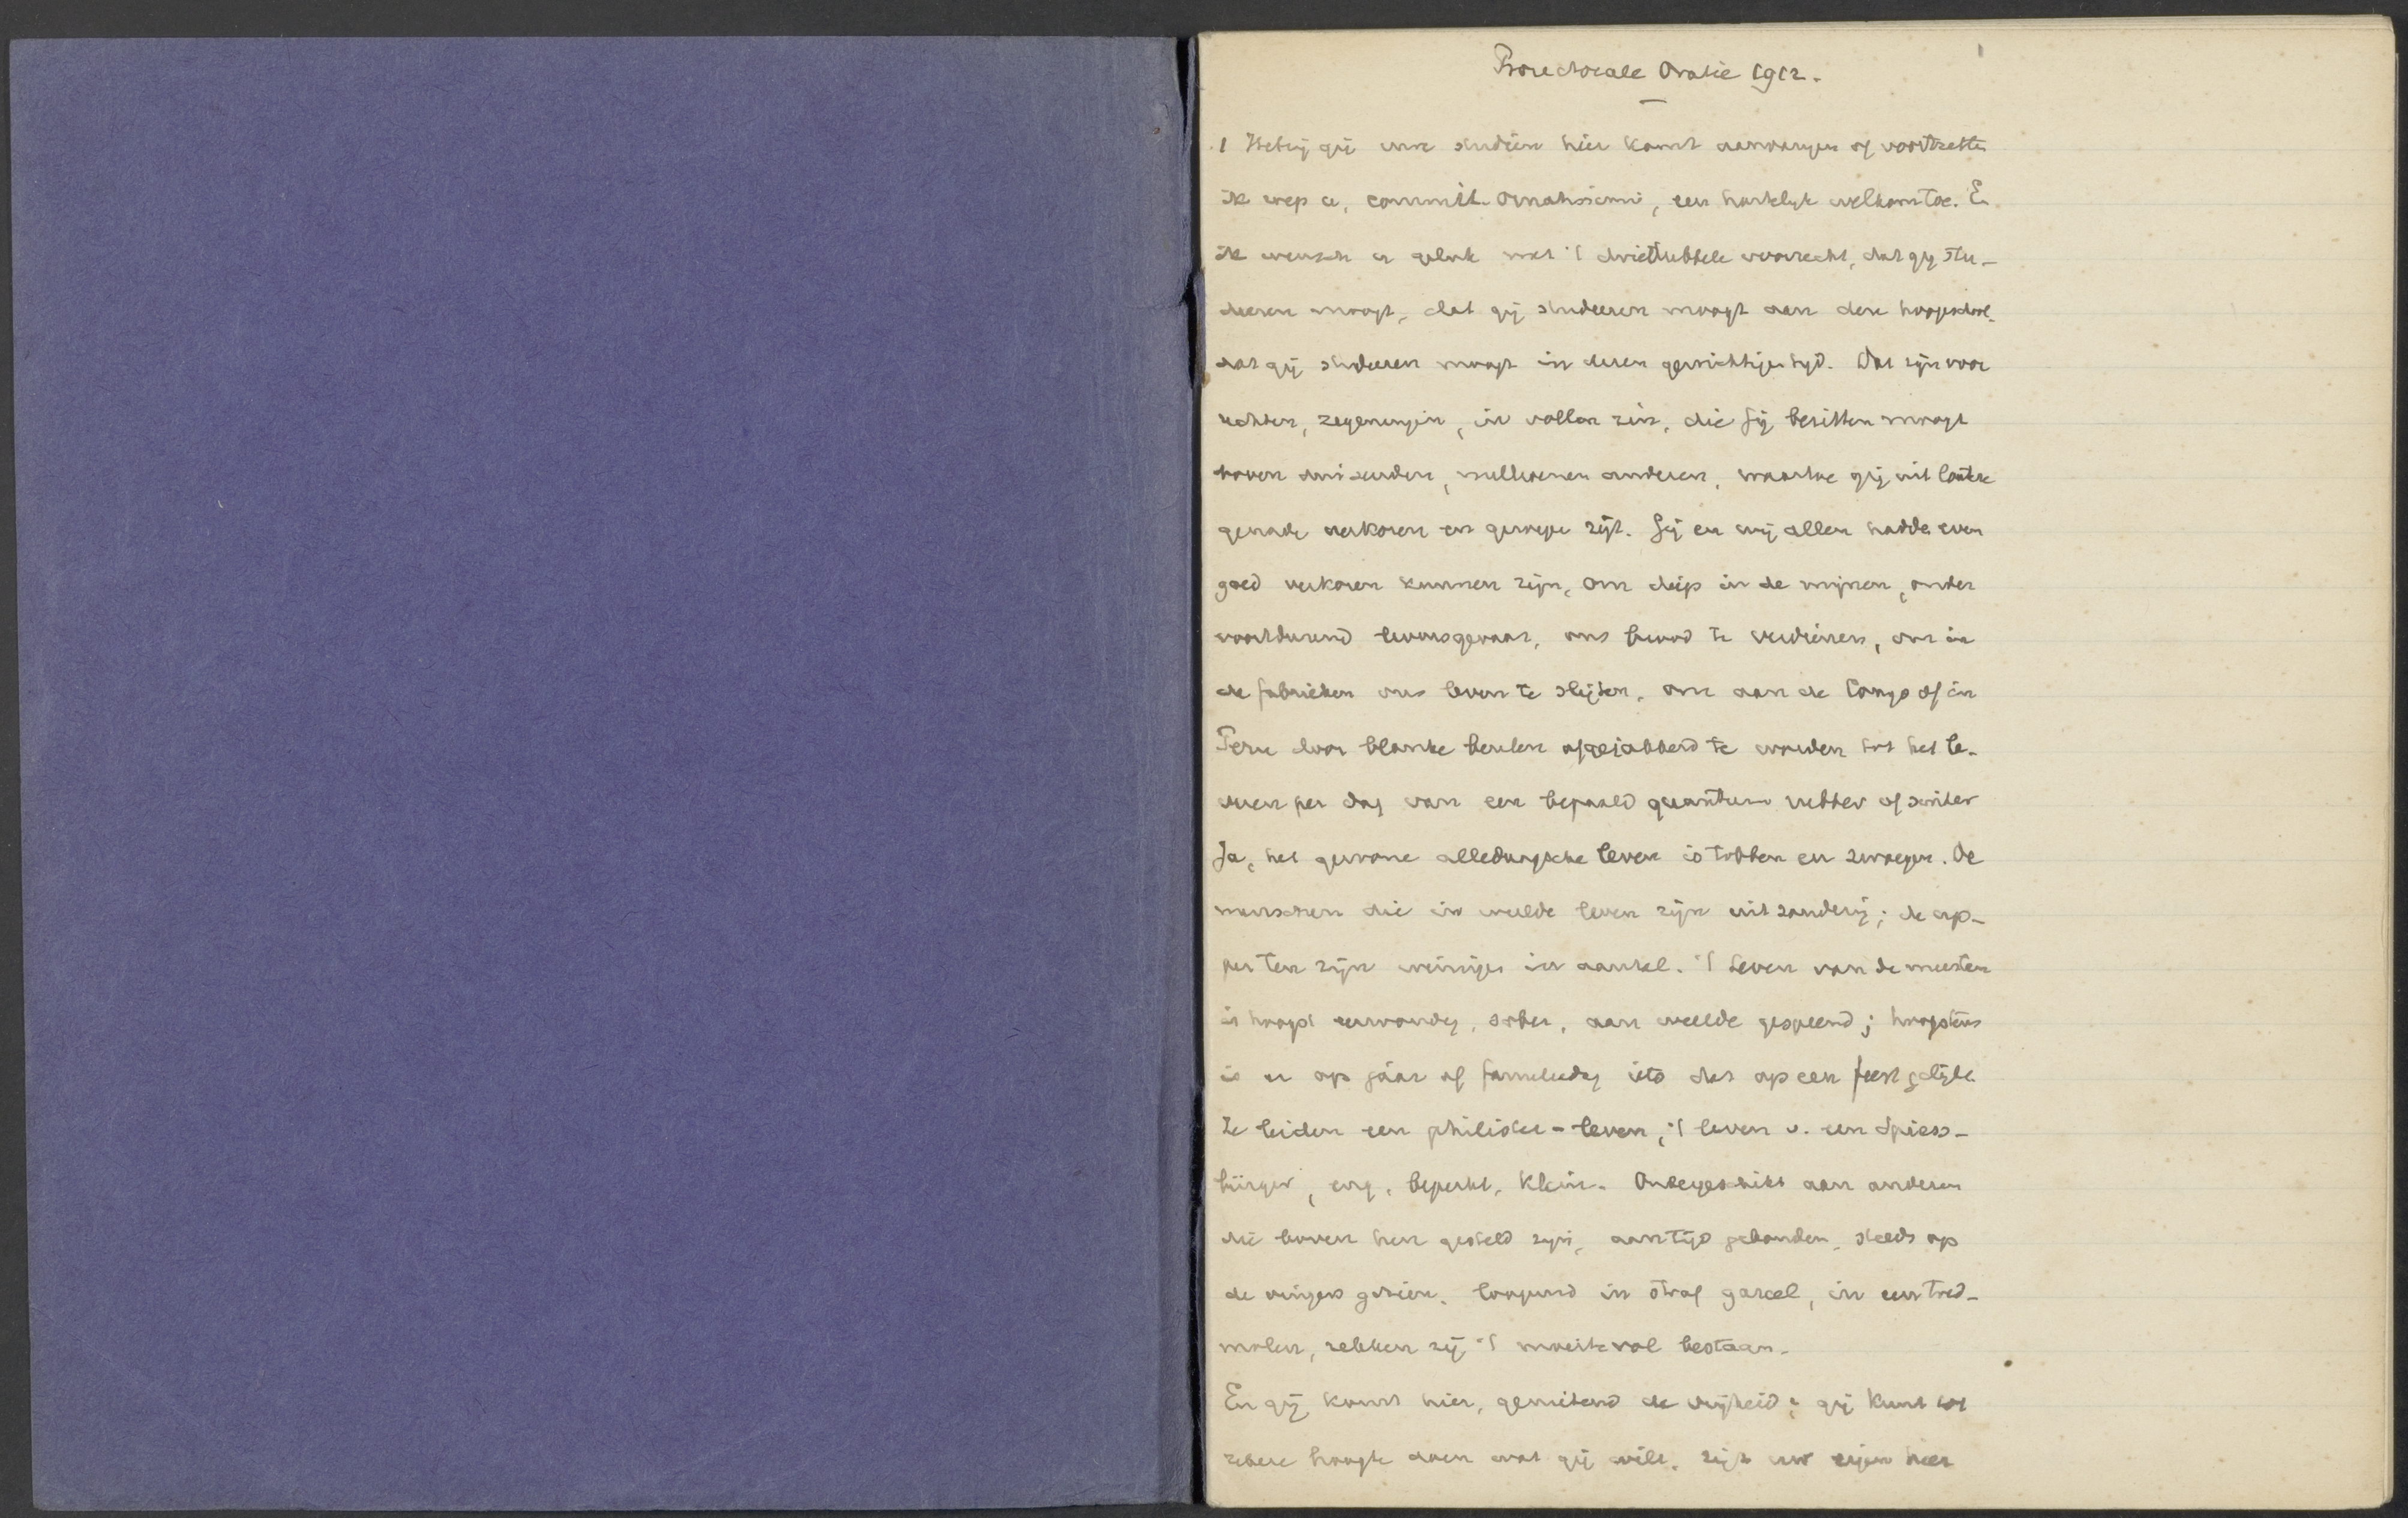 Prorectorale Oratie 1912.
1
1 Hetzij gij uwe studiën hier komt aanvangen of voortzetten
ik roep u, commilit. ornatissimi, een hartelijk welkom toe. En
ik wensch u geluk met 't driedubbele voorrecht, dat gij stu-
deeren moogt, dat gij studeeren moogt aan deze hoogeschool,
dat gij studeeren moogt in dezen gewichtigen tijd. Dat zijn voor
rechten, zegeningen, in vollen zin, die gij bezitten moogt
boven duizenden, millioenen anderen, waartoe gij uit loutere
genade verkoren en geroepen zijt. Gij en wij allen hadden even
goed verkoren kunnen zijn, om diep in de mijnen, onder
voortdurend levensgevaar, ons brood te verdienen, om in
de fabrieken ons leven te slijten, om aan de Congo of in
Peru door blanke beulen afgejakkerd te worden tot het le-
veren per dag van een bepaald quantum rubber of zilver
Ja, het gewone alledaagsche leven is tobben en zwoegen. De
menschen die in weelde leven zijn uitzondering; de op-
persten zijn weinigen in aantal. 't Leven van de meesten
is hoogst eenvoudig, sober, aan weelde gespeend; hoogstens
is er op jaar of familiedag iets dat op een feest gelijkt.
Ze leiden een philister-leven, 't leven v. een Spiess-
bürger, eng, beperkt, klein. Ondergeschikt aan anderen
die boven hen gesteld zijn, aan tijd gebonden, steeds op
de vingers gezien, loopend in straf gareel, in een tred-
molen, hebben zij 't moeitevol bestaan.
En gij komt hier, genietend de vrijheid; gij kunt tot
zekere hoogte doen wat gij wilt, zijt uw eigen heer